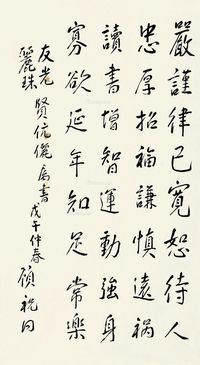 嚴謹律己寬恕待人
忠厚招福謙慎遠禍
讀書增智運動強身
寡欲延年知足常樂
友光
麗珠
賢伉儷屬書 戊午仲春 顧祝同